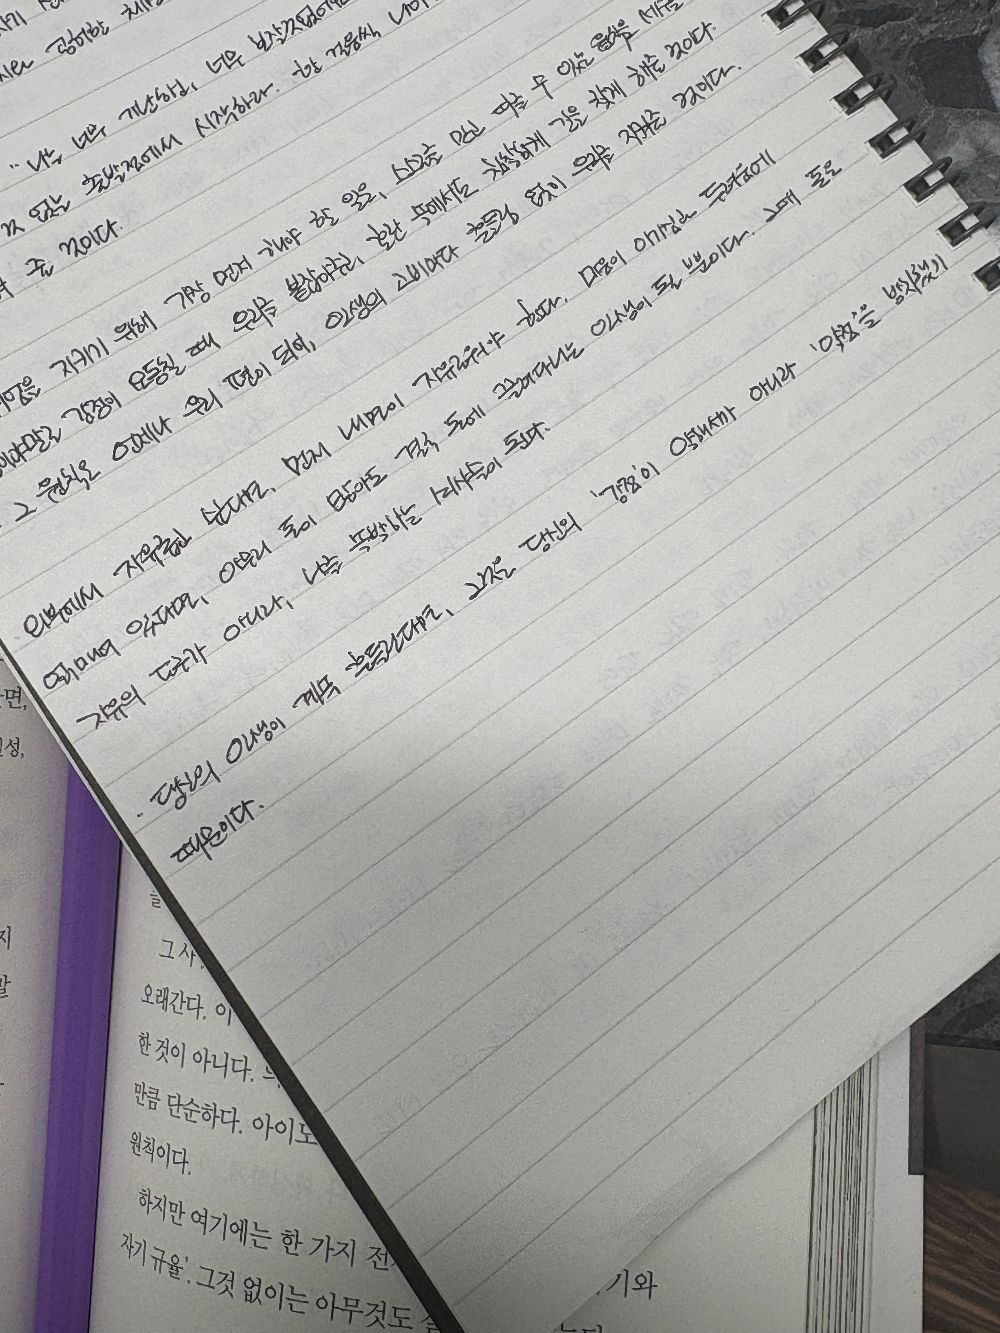 "나는 너무 가난하고, 너무 보잘것없어
것 없는 출발점에서 시작하라. 한 걸음씩 나아
줄 것이다.
지키기 위해 가장 먼저 해야 할 일은, 스스로 믿고 여길 수 있는 원칙을 세우는
이야말로 감정이 요동칠 때 우리를 붙잡아주고, 혼란 속에서도 침착하게 길을 찾게 해줄 것이다.
그 원칙은 언제나 우리 편이 되어, 인생의 고비마다 흔들림 없이 우리를 지켜줄 것이다.
외부에서 자유로운 삶 대신, 먼저 내면이 자유로워야 한다. 마음이 아기심과 두려움에
얽매여 있다면, 아무리 돈이 많아도 결국 돈에 끌려다니는 인생이 될 뿐이다. 그때 돈은
자유의 도구가 아니라, 나를 속박하는 쇠사슬이 된다.
"당신의 인생이 계속 흔들린다면, 그것은 당신의 '감정'이 약해서가 아니라 '약함'을 방치했기
때문이다.
란면,
성,
지
말
그 사
오래간다. 이
한 것이 아니다.
만큼 단순하다. 아이도
원칙이다.
하지만 여기에는 한 가지 전
자기 규율'. 그것 없이는 아무것도
기와